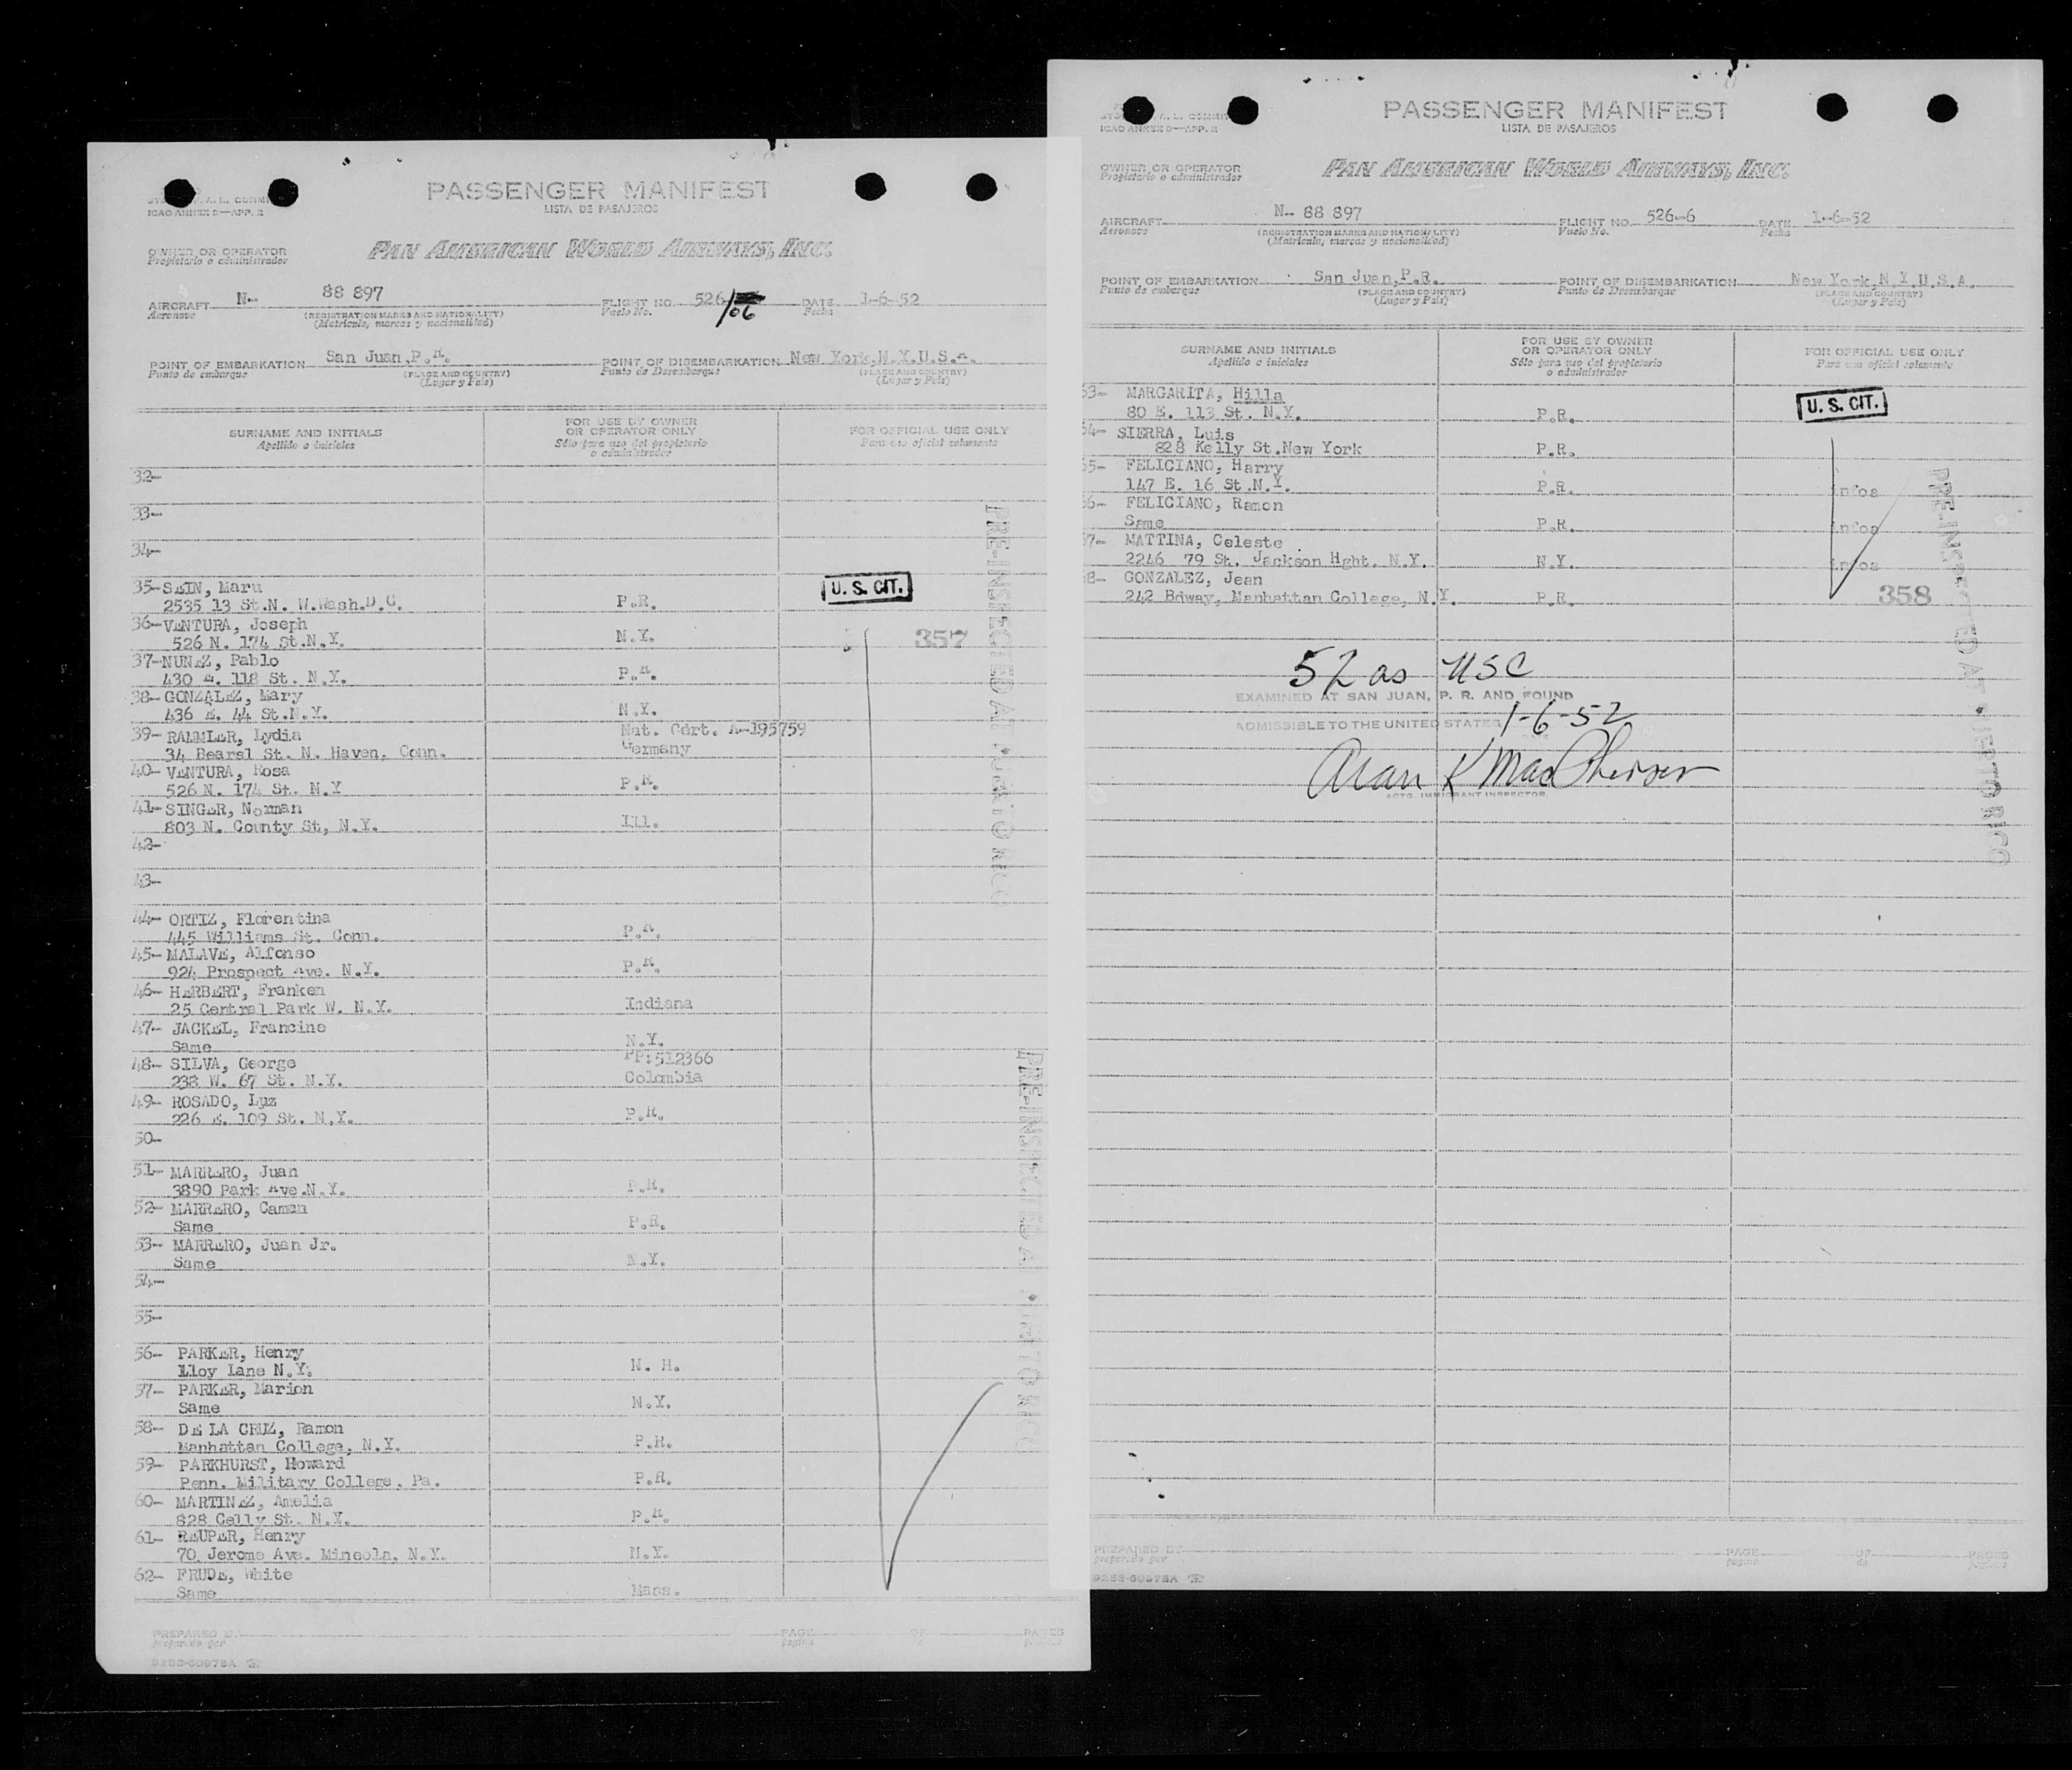 PASSENGER MANIFEST
LISTA DE PASAJEROS
ICAO ANNEX 9—APP. 2
OWNER OR OPERATOR
Propietario o administrador
PAN AMERICAN WORLD AIRWAYS, INC.
AIRCRAFT N- 88 897 FLIGHT NO. 526/06 DATE 1-6-52
Aeronave (REGISTRATION MARKS AND NATIONALITY) Vuelo No. Fecha
(Matrícula, marcas y nacionalidad)
POINT OF EMBARKATION San Juan,P.R. POINT OF DISEMBARKATION New York,N.Y.U.S.A.
Punto de embarque (PLACE AND COUNTRY) Punto de Desembarque (PLACE AND COUNTRY)
(Lugar y País) (Lugar y País)
SURNAME AND INITIALS
Apellido e iniciales
FOR USE BY OWNER
OR OPERATOR ONLY
Sólo para uso del propietario
o administrador
FOR OFFICIAL USE ONLY
Para uso oficial solamente
32-
33-
34-
35- SEIN, Maru
2535 13 St.N. W.Wash.D.C. P.R. U. S. CIT.
36- VENTURA, Joseph
526 N. 174 St.N.Y. N.Y. 357
37- NUNEZ, Pablo
430 E. 118 St. N.Y. P.R.
38- GONZALEZ, Mary
436 E. 44 St.N.Y. N.Y.
39- RAMMLER, Lydia Nat. Cert. A-195759
34 Bearsl St. N. Haven, Conn. Germany
40- VENTURA, Rosa
526 N. 174 St. N.Y P.R.
41- SINGER, Norman
803 N. County St, N.Y. Ill.
42-
43-
44- ORTIZ, Florentina
445 Williams St. Conn. P.R.
45- MALAVE, Alfonso
924 Prospect Ave. N.Y. P.R.
46- HERBERT, Franken
25 Central Park W. N.Y. Indiana
47- JACKEL, Francine
Same N.Y.
48- SILVA, George PP:512366
238 W. 67 St. N.Y. Colombia
49- ROSADO, Luz
226 E. 109 St. N.Y. P.R.
50-
51- MARRERO, Juan
3890 Park Ave.N.Y. P.R.
52- MARRERO, Camen
Same P.R.
53- MARRERO, Juan Jr.
Same N.Y.
54-
55-
56- PARKER, Henry
Lloy Lane N.Y. N. H.
57- PARKER, Marion
Same N.Y.
58- DE LA CRUZ, Ramon
Manhattan College, N.Y. P.R.
59- PARKHURST, Howard
Penn. Military College, Pa. P.R.
60- MARTINEZ, Amelia
828 Celly St. N.Y. P.R.
61- REUPER, Henry
70 Jerome Ave. Mineola, N.Y. N.Y.
62- FRUDE, White
Same Mass.
PRE-INSPECTED AT
PRE-INSPECTED
PREPARED BY PAGE OF PAGES
preparado por página
PASSENGER MANIFEST
LISTA DE PASAJEROS
ICAO ANNEX 9—APP. 2
OWNER OR OPERATOR
Propietario o administrador
PAN AMERICAN WORLD AIRWAYS, INC.
AIRCRAFT N- 88 897 FLIGHT NO. 526-6 DATE 1-6-52
Aeronave (REGISTRATION MARKS AND NATIONALITY) Vuelo No. Fecha
(Matrícula, marcas y nacionalidad)
POINT OF EMBARKATION San Juan,P.R. POINT OF DISEMBARKATION New York,N.Y.U.S.A.
Punto de embarque (PLACE AND COUNTRY) Punto de Desembarque (PLACE AND COUNTRY)
(Lugar y País) (Lugar y País)
SURNAME AND INITIALS
Apellido e iniciales
FOR USE BY OWNER
OR OPERATOR ONLY
Sólo para uso del propietario
o administrador
FOR OFFICIAL USE ONLY
Para uso oficial solamente
63- MARGARITA, Hilla
80 E. 113 St. N.Y. P.R. U. S. CIT.
64- SIERRA, Luis
828 Kelly St.New York P.R.
65- FELICIANO, Harry
147 E. 16 St.N.Y. P.R. infoa
66- FELICIANO, Ramon
Same P.R. infoa
67- MATTINA, Celeste
2246 79 St. Jackson Hght. N.Y. N.Y. infoa
68- GONZALEZ, Jean
242 Bdway, Manhattan College, N.Y. P.R. 358
52 as USC
EXAMINED AT SAN JUAN, P. R. AND FOUND
ADMISSIBLE TO THE UNITED STATES 1-6-52
Alan K MacPherson
ACTG. IMMIGRANT INSPECTOR.
PRE-INSPECTED AT PUERTO RICO
PREPARED BY PAGE OF PAGES
preparado por página de